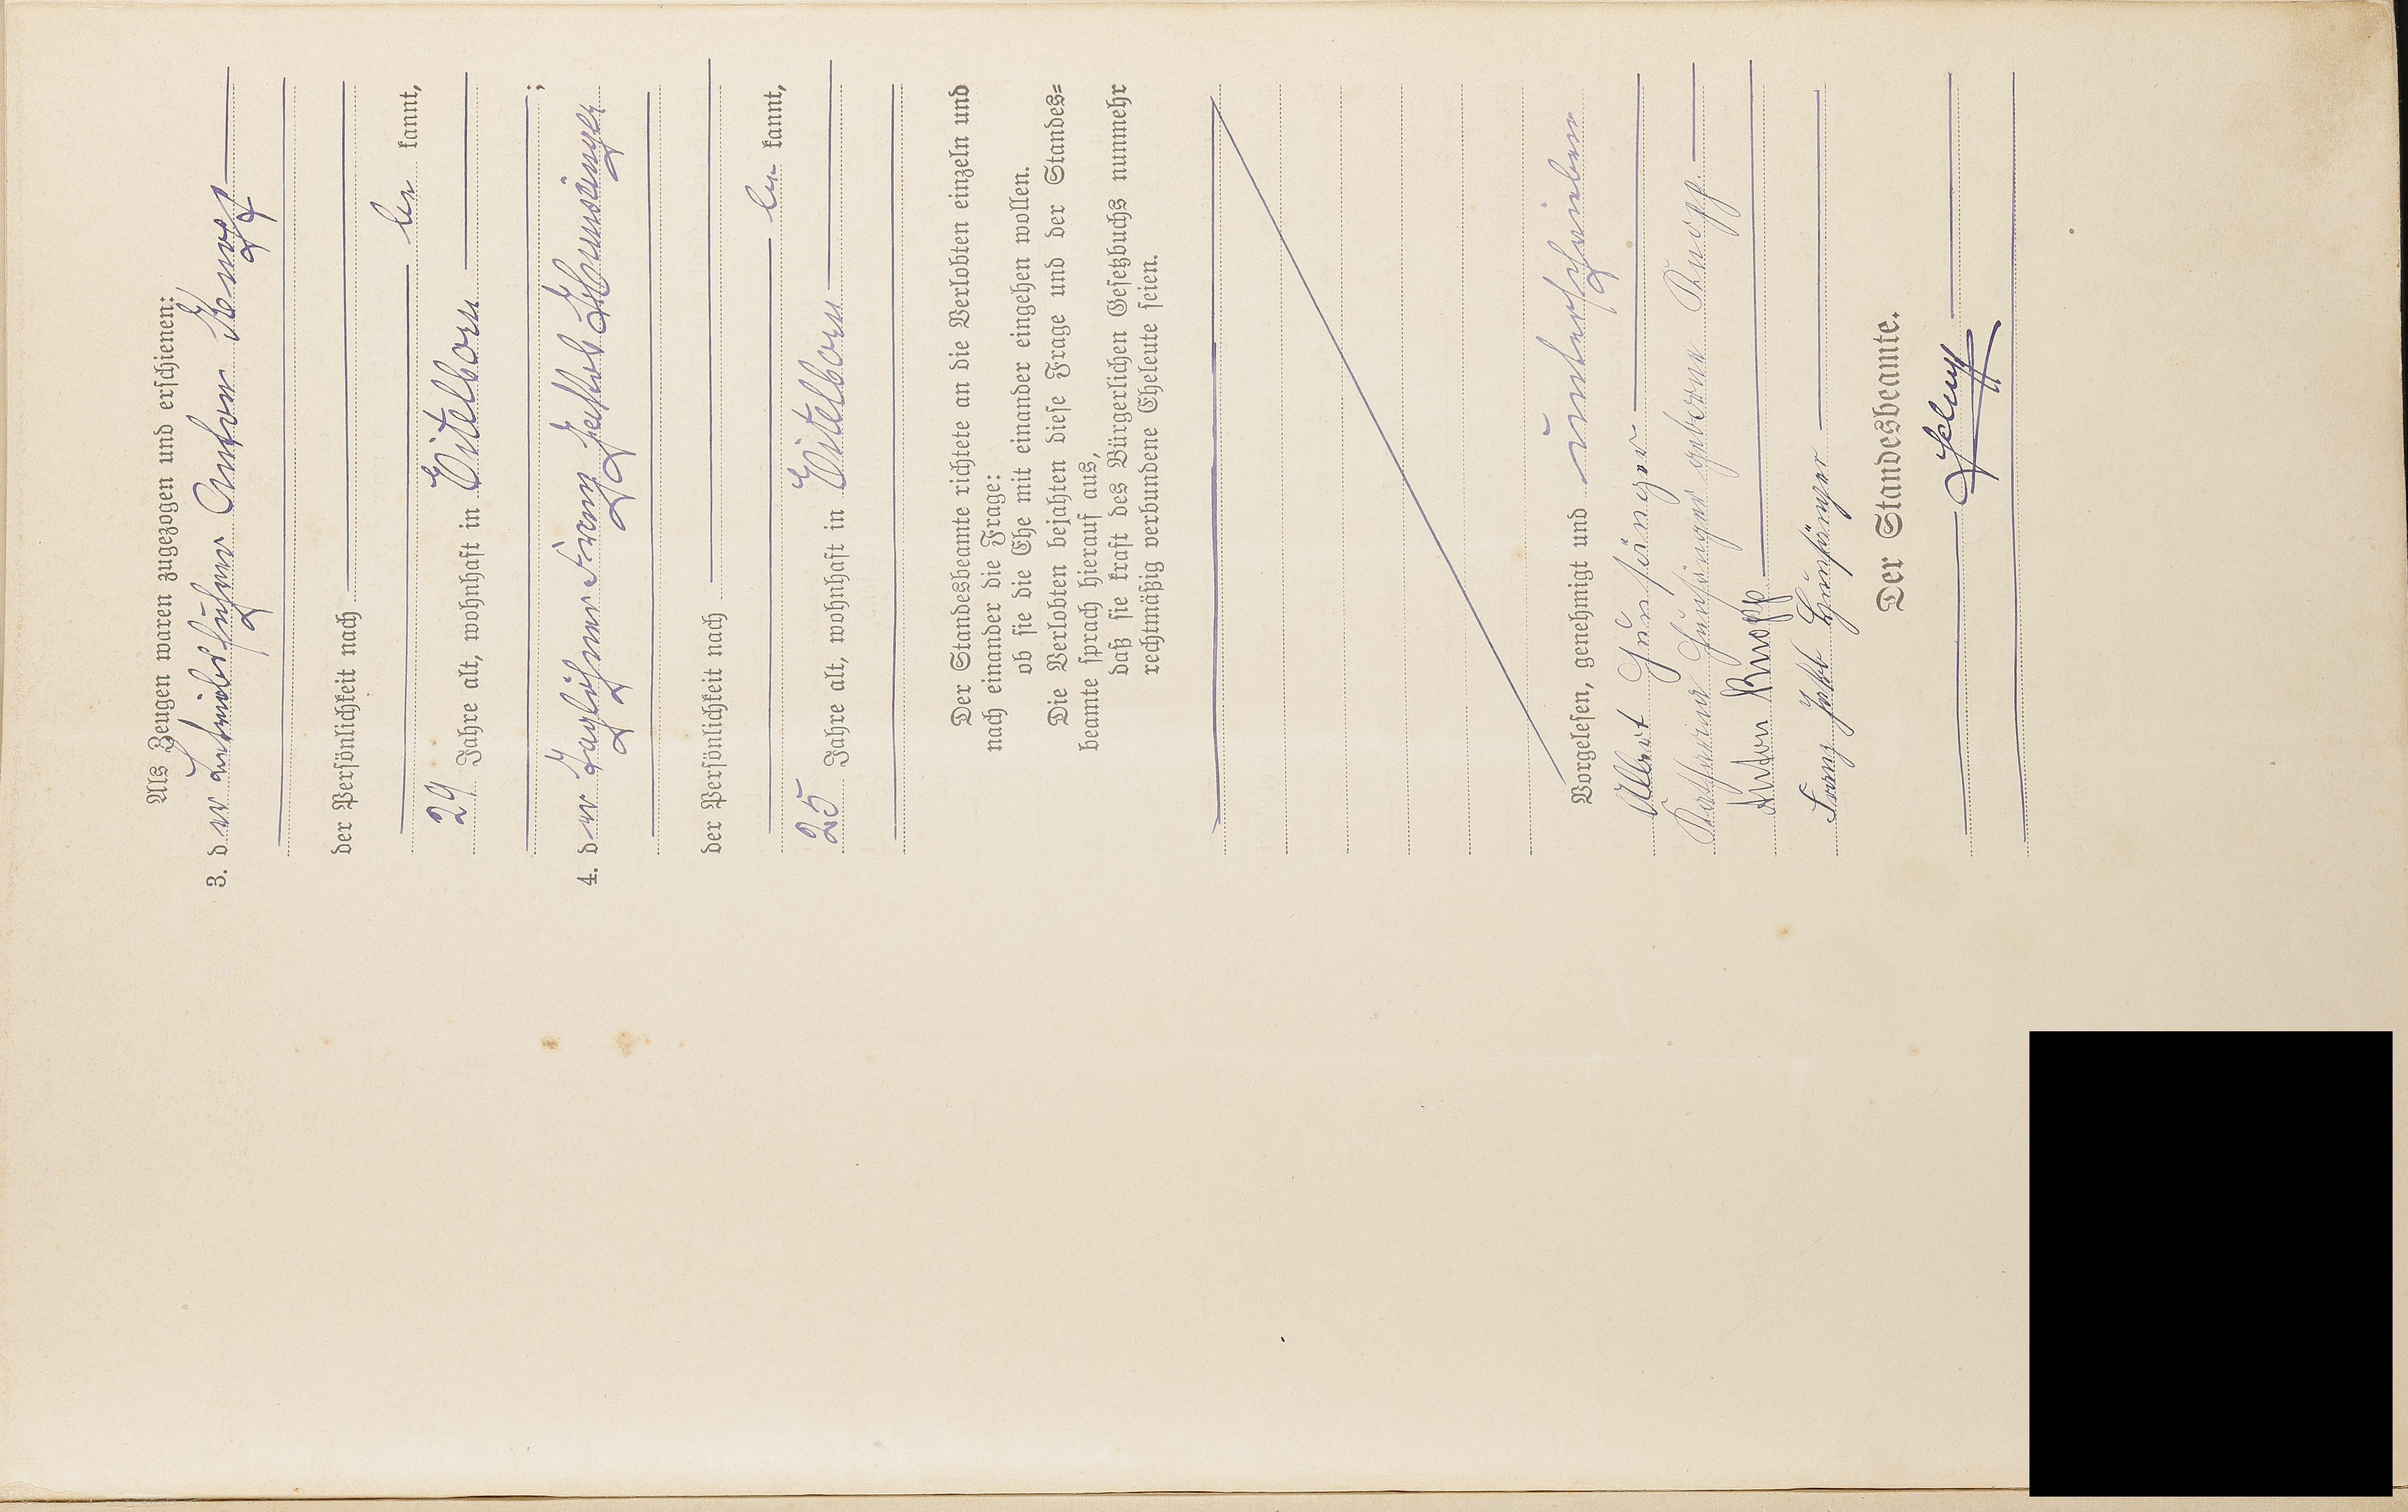 Als Zeugen waren zugezogen und erschienen:
3. der Betriebsführer Anton Knopp
der Persönlichkeit nach
be kannt,
29 Jahre alt, wohnhaft in Eitelborn
;
4. der Taglöhner Franz Jakob Hümsänger
der Persönlichkeit nach
be kannt,
25 Jahre alt, wohnhaft in Eitelborn
Der Standesbeamte richtete an die Verlobten einzeln und
nach einander die Frage:
ob sie die Ehe mit einander eingehen wollen.
Die Verlobten bejahten diese Frage und der Standes=
beamte sprach hierauf aus,
daß sie kraft des Bürgerlichen Gesetzbuchs nunmehr
rechtmäßig verbundene Eheleute seien.
Vorgelesen, genehmigt und unterschrieben
Albert Hünsänger
Katharina Hünsänger geborene Knopp.
Anton Knopp
Franz Jakob Hünsänger
Der Standesbeamte.